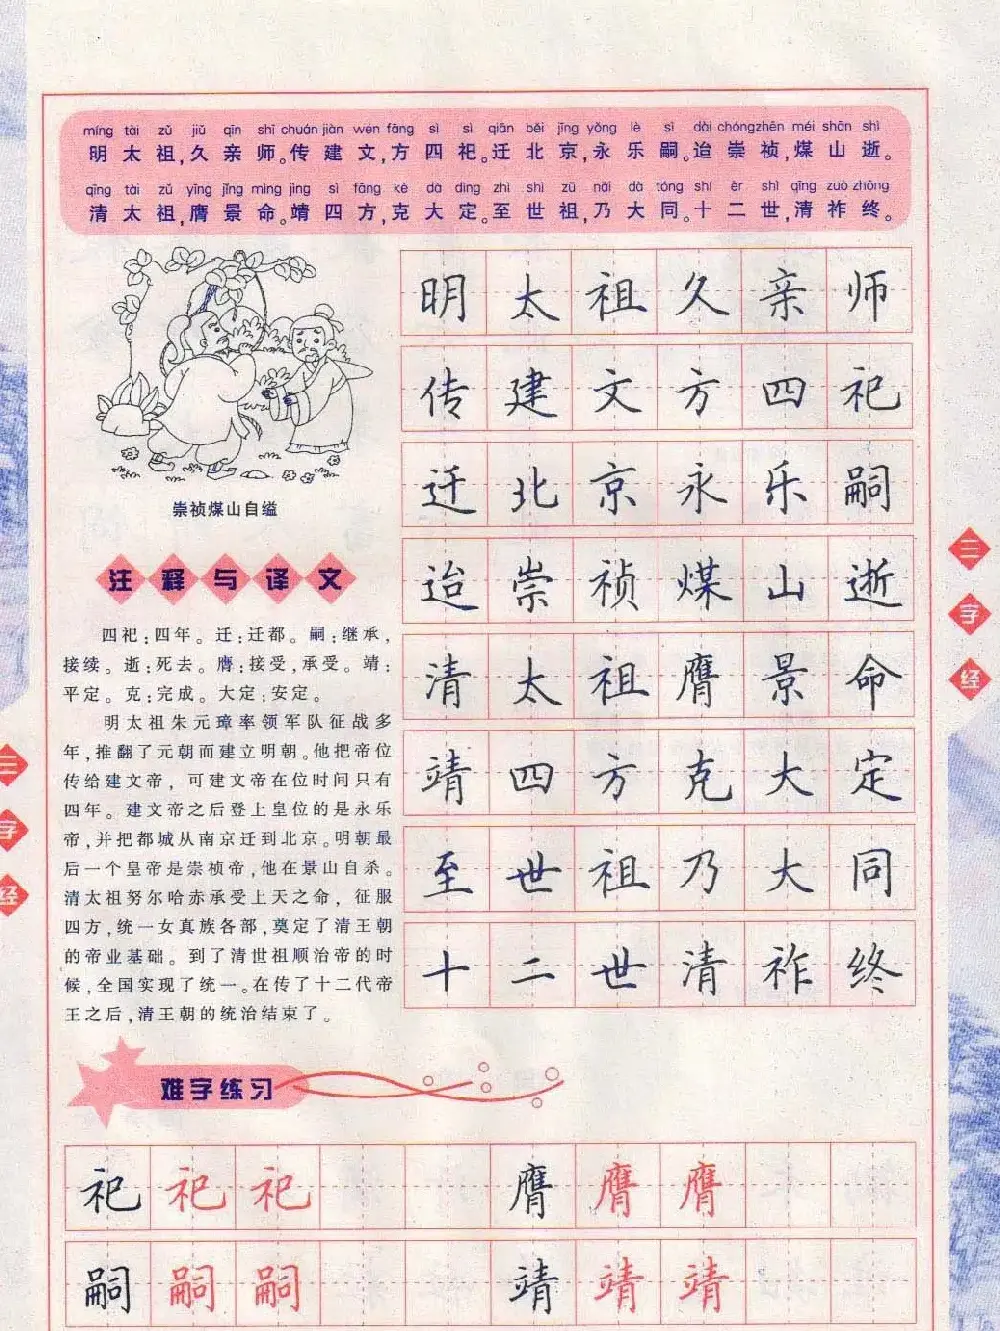 míng tài zǔ jiǔ qīn shī chuán jiàn wén fāng sì sì qiān běi jīng yǒng lè sì dài chóngzhēn méi shān shì
明太祖,久亲师。传建文,方四祀。迁北京,永乐嗣。迨崇祯,煤山逝。
qīng tài zǔ yīng jǐng mìng jìng sì fāng kè dà dìng zhì shì zǔ nǎi dà tóng shí èr shì qīng zuò zhōng
清太祖,膺景命。靖四方,克大定。至世祖,乃大同。十二世,清祚终。
崇祯煤山自缢
注释与译文
四祀:四年。迁:迁都。嗣:继承,
接续。逝:死去。膺:接受,承受。靖:
平定。克:完成。大定:安定。
明太祖朱元璋率领军队征战多
年,推翻了元朝而建立明朝。他把帝位
传给建文帝,可建文帝在位时间只有
四年。建文帝之后登上皇位的是永乐
帝,并把都城从南京迁到北京。明朝最
后一个皇帝是崇祯帝,他在景山自杀。
清太祖努尔哈赤承受上天之命,征服
四方,统一女真族各部,奠定了清王朝
的帝业基础。到了清世祖顺治帝的时
候,全国实现了统一。在传了十二代帝
王之后,清王朝的统治结束了。
明太祖久亲师
传建文方四祀
迁北京永乐嗣
迨崇祯煤山逝
清太祖膺景命
靖四方克大定
至世祖乃大同
十二世清祚终
三字经
三字经
难字练习
祀祀祀 膺膺膺
嗣嗣嗣 靖靖靖